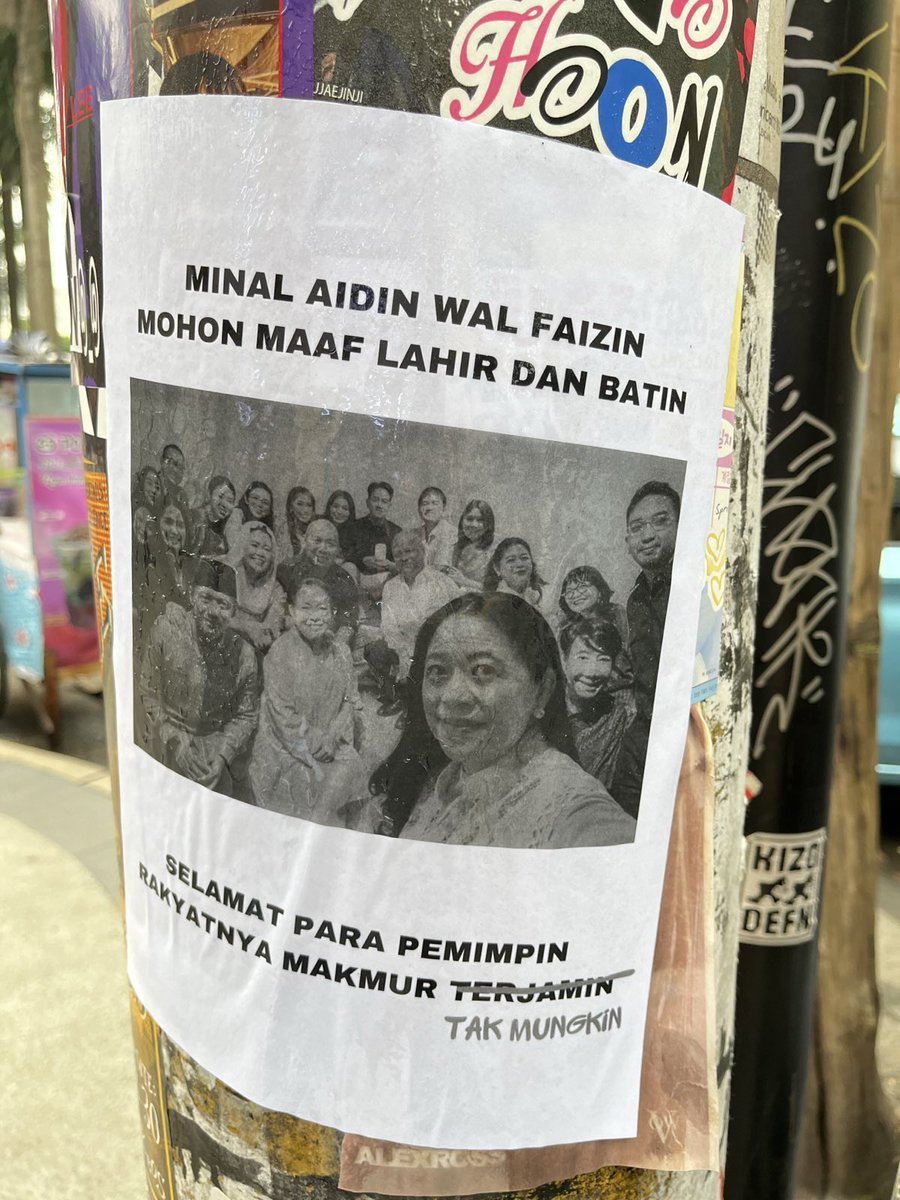 JJAEJINJI
HOON
MINAL AIDIN WAL FAIZIN
MOHON MAAF LAHIR DAN BATIN
SELAMAT PARA PEMIMPIN
RAKYATNYA MAKMUR TERJAMIN
TAK MUNGKIN
KIZO
DEFN
ALEXROSS